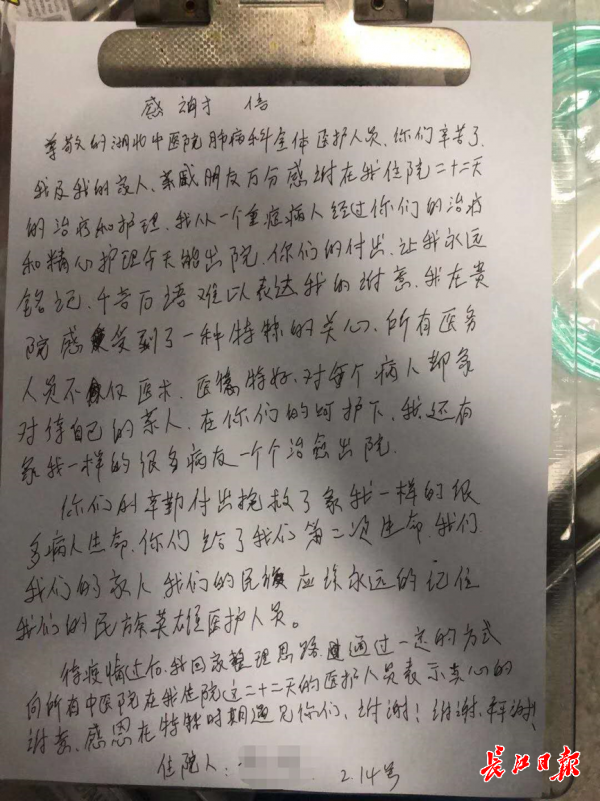 感谢信
尊敬的湖北中医院肺病科全体医护人员、你们辛苦了
我及我的家人、亲戚朋友万分感谢在我住院二十二天
的治疗和护理、我从一个重症病人经过你们的治疗
和精心护理今天能出院、你们的付出、让我永远
铭记、千言万语难以表达我的谢意、我在贵
院感受到了一种特殊的关心、所有医务
人员不仅医术、医德特好、对每个病人都象
对待自己的亲人、在你们的呵护下、我还有
象我一样的很多病友一个个治愈出院.
你们的辛勤付出挽救了象我一样的很
多病人生命、你们给了我们第二次生命、我们
我们的家人 我们的民族应该永远的记住
我们的民族英雄医护人员。
待疫情过后、我回家整理思路、通过一定的方式
向所有中医院在我住院这二十二天的医护人员表示真心的
谢意、感恩在特殊时期遇见你们、谢谢！谢谢、拜谢!
住院人：
2.14号
长江日报